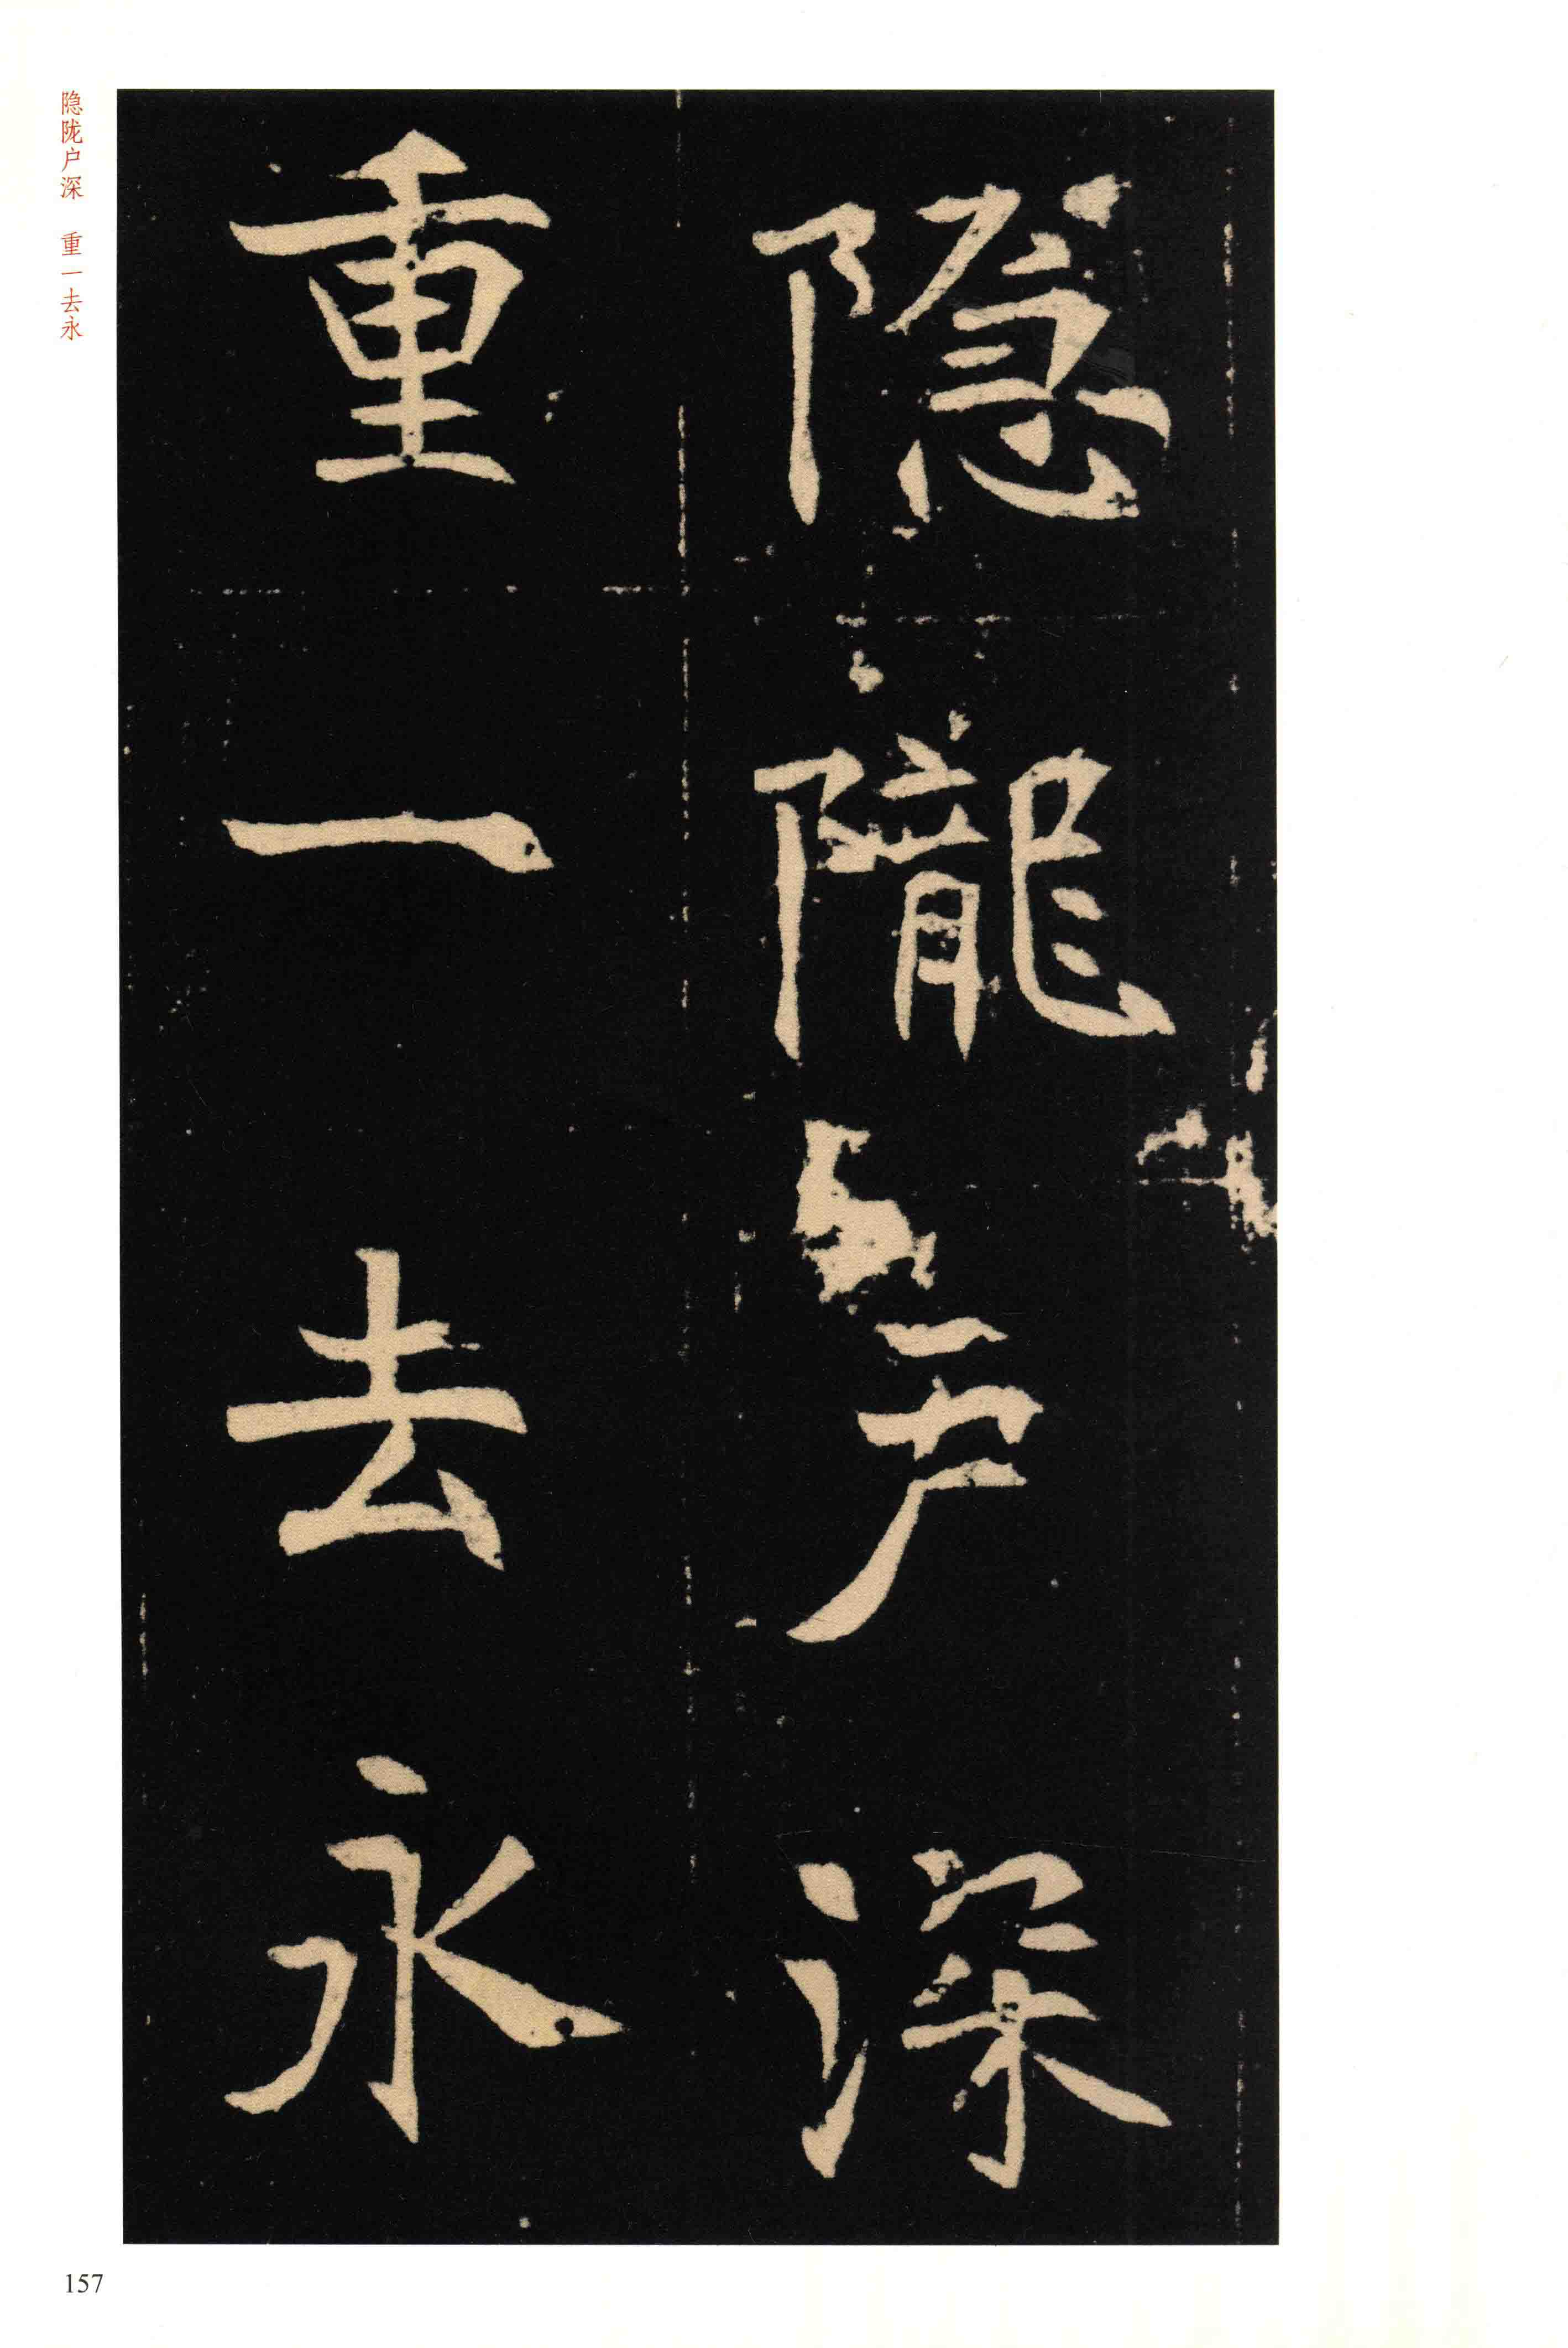 隐陇户深 重一去永
隐隴户深
重一去永
157